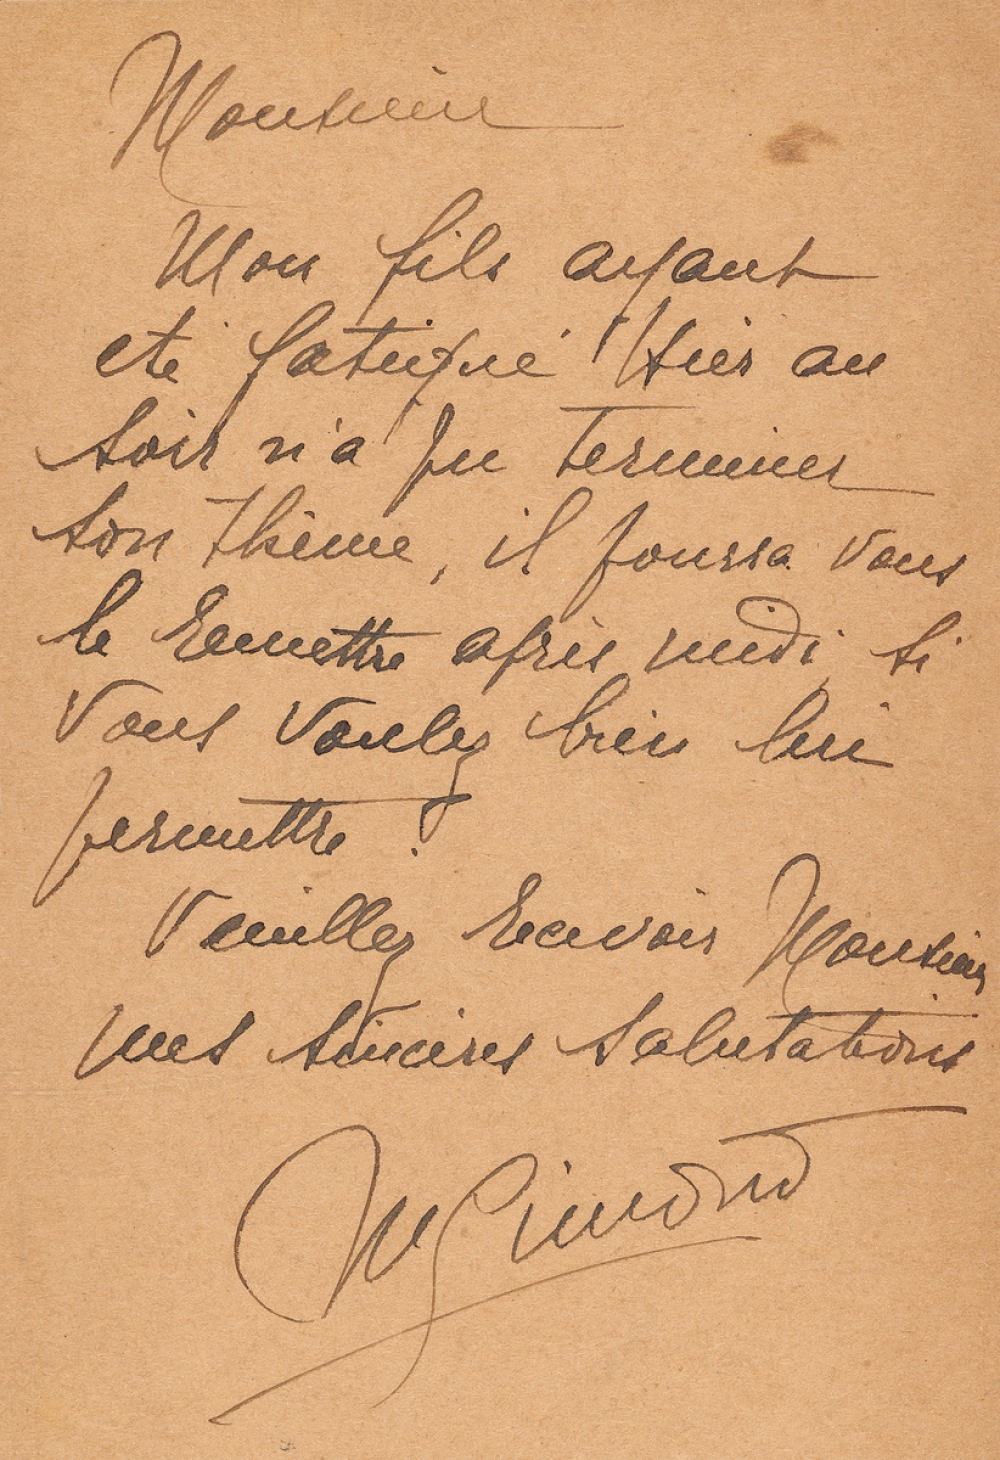 Monsieur
Mon fils ayant
eté fatigué Hier au
soir n'a pu terminer
son thème, il pourra vous
le remettre après midi, si
vous voulez bien lui
permettre.
Veuillez recevoir Monsieur
mes sincères salutations
M Simond